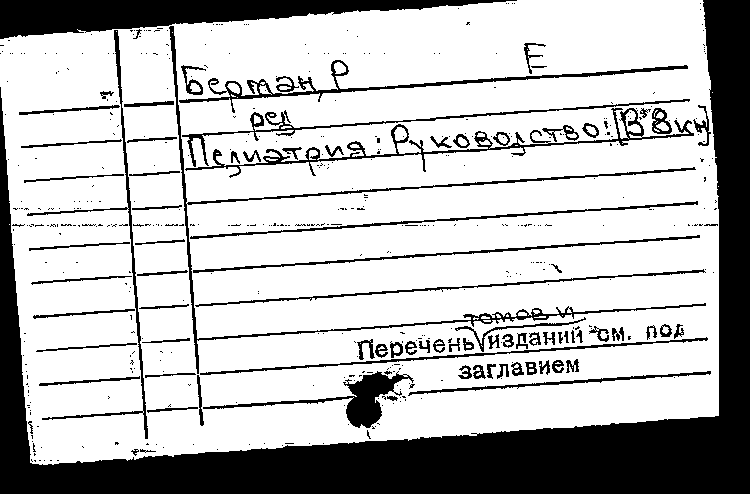 Берман, Р Е
ред
Педиатрия: Руководство: [В 8 кн]
томов и
Перечень изданий см. под
заглавием